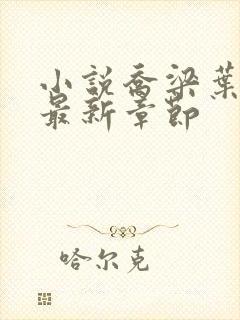 小説喬梁葉
最新章節
哈尔克